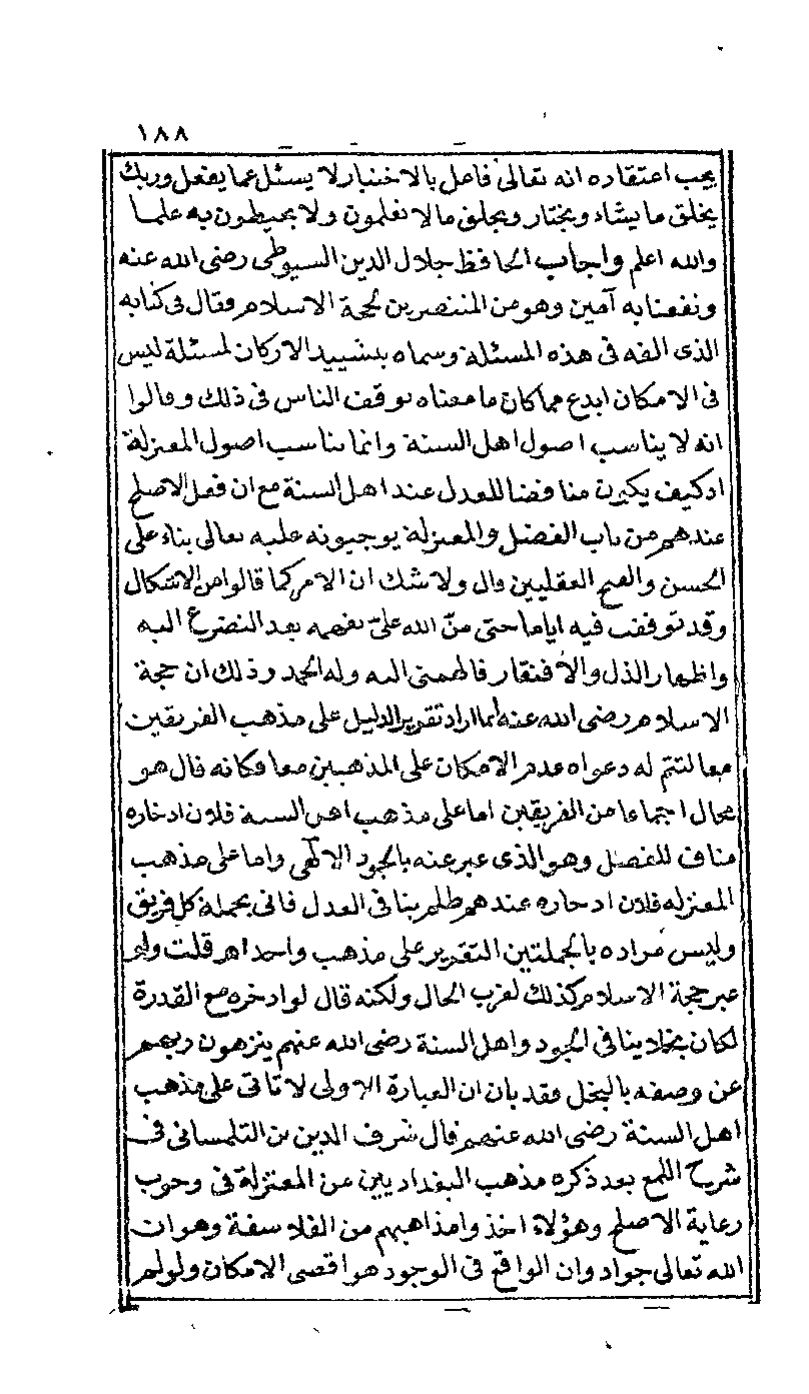 ١٨٨
يجب اعتقاده انه تعالى فاعل بالاختيار لا يسئل عما يفعل وربك
يخلق ما يشاء ويختار ويخلق ما لا تعلمون ولا يحيطون به علما
والله اعلم واجاب الحافظ جلال الدين السيوطى رضى الله عنه
ونفعنا به آمين وهو من المنتصرين لحجة الاسلام فقال فى كتابه
الذى الفه فى هذه المسئلة وسماه بتشييد الاركان لمسئلة ليس
فى الامكان ابدع مما كان ما معناه توقف الناس فى ذلك وقالوا
انه لا يناسب اصول اهل السنة وانما يناسب اصول المعتزلة
اذ كيف يكون مناقضا للعدل عند اهل السنة مع ان فعل الاصلح
عندهم من باب الفضل والمعتزلة يوجبونه عليه تعالى بناء على
الحسن والقبح العقليين قال ولا شك ان الامر كما قالوا من الاشكال
وقد توقفت فيه اياما حتى منّ الله علىّ بفهمه بعد التضرع اليه
واظهار الذل والافتقار فالهمنى اليه وله الحمد وذلك ان حجة
الاسلام رضى الله عنه انما اراد تقرير الدليل على مذهب الفريقين
معا لتتم له دعواه عدم الامكان على المذهبين معا فكانه قال هو
محال اجتماعا من الفريقين اما على مذهب اهل السنة فلان ادخاره
مناف للفضل وهو الذى عبر عنه بالجود الالهى واما على مذهب
المعتزله فلان ادخاره عندهم ظلم ينافى العدل فاتى بجملة كل فريق
وليس مراده بالجملتين التقرير على مذهب واحد اهـ قلت ولو
عبر حجة الاسلام كذلك لقرب الحال ولكنه قال لو ادخره مع القدرة
لكان بخلا ينافى الجود واهل السنة رضى الله عنهم ينزهون ربهم
عن وصفه بالبخل فقد بان ان العبارة الاولى لا تاتى على مذهب
اهل السنة رضى الله عنهم قال شرف الدين بن التلمسانى فى
شرح اللمع بعد ذكره مذهب البغداديين عن المعتزلة فى وجوب
رعاية الاصلح وهؤلاء اخذوا مذاهبهم من الفلاسفة وهو ان
الله تعالى جواد وان الواقع فى الوجود هو اقصى الامكان ولو لم